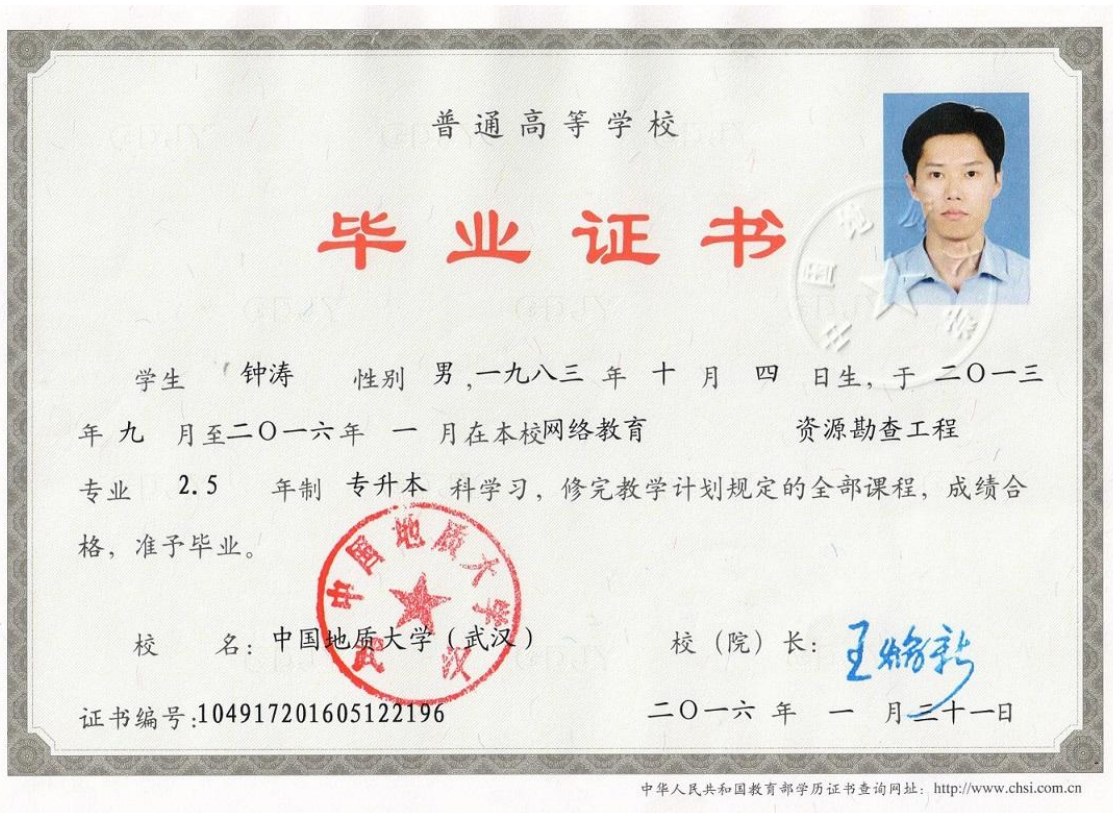 普通高等学校
毕业证书
学生 钟涛 性别 男,一九八三 年 十 月 四 日生,于 二〇一三
年 九 月至二〇一六年 一 月在本校网络教育 资源勘查工程
专业 2.5 年制 专升本 科学习,修完教学计划规定的全部课程,成绩合
格,准予毕业。
中国地质大学
武汉
校 名:中国地质大学(武汉) 校(院)长:王焰新
证书编号:104917201605122196 二〇一六 年 一 月二十一日
中华人民共和国教育部学历证书查询网址:http://www.chsi.com.cn